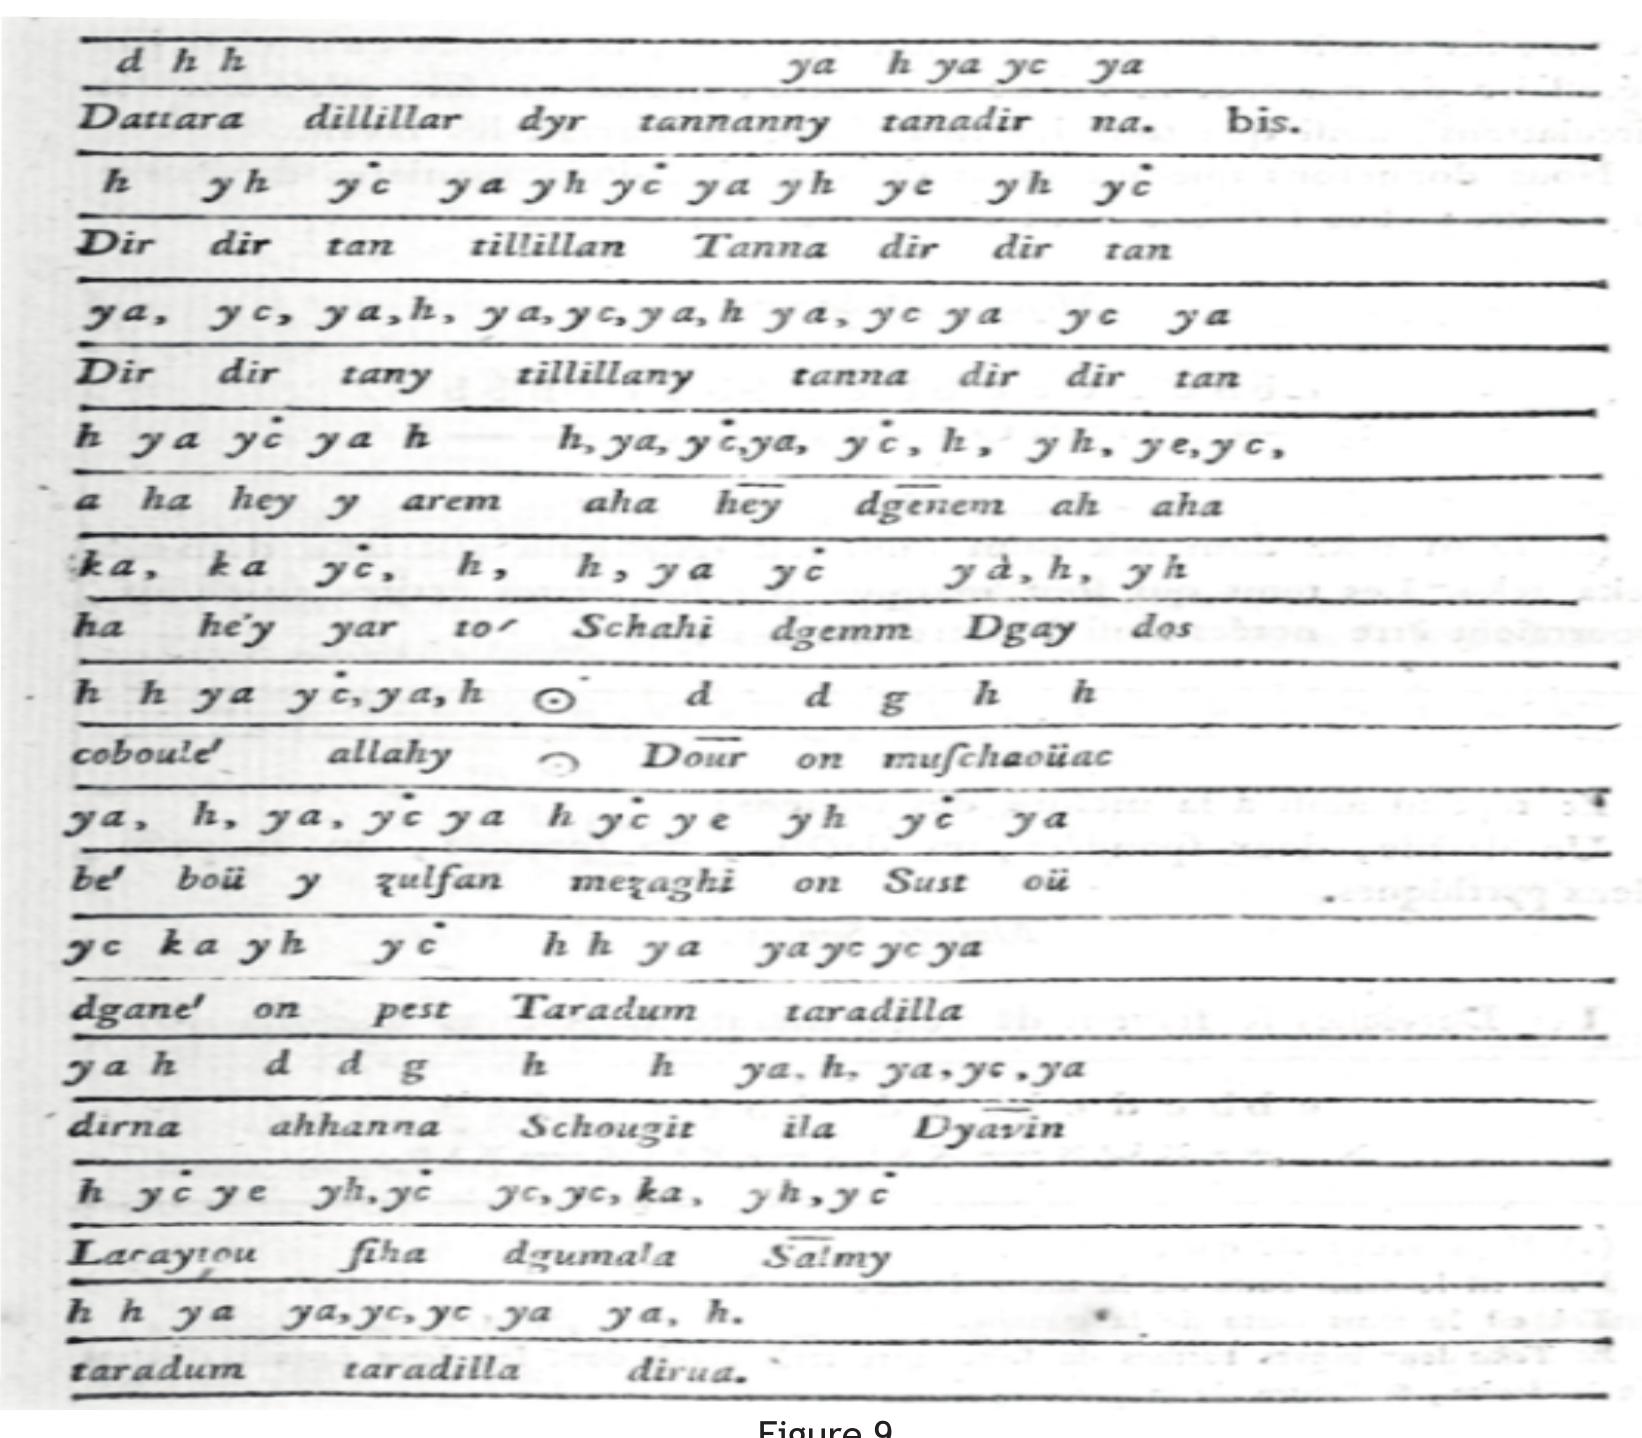 d h h ya h ya yc ya
Dattara dillillar dyr tannanny tanadir na. bis.
h yh yċ ya yh yċ ya yh ye yh yċ
Dir dir tan tillillan Tanna dir dir tan
ya, yc, ya, h, ya, yc, ya, h ya, yc ya yc ya
Dir dir tany tillillany tanna dir dir tan
h ya yċ ya h h, ya, yċ, ya, yċ, h, yh, ye, yc,
a ha hey y arem aha hey dgenem ah aha
ka, ka yċ, h, h, ya yċ yà, h, yh
ha he'y yar to Schahi dgemm Dgay dos
h h ya yċ, ya, h ⊙ d d g h h
coboule' allahy Dour on muſchaoüac
ya, h, ya, yċ ya h yċ ye yh yċ ya
be' boü y zulfan mezaghi on Sust oü
yc ka yh yċ h h ya ya yc yc ya
dgane' on pest Taradum taradilla
ya h d d g h h ya. h, ya, yc, ya
dirna ahhanna Schougit ila Dyavin
h yċ ye yh, yċ yc, yc, ka, yh, yċ
ſiha dgumala Salmy
h h ya ya, yc, yc ya ya, h.
taradum taradilla dirua.
Figure 9